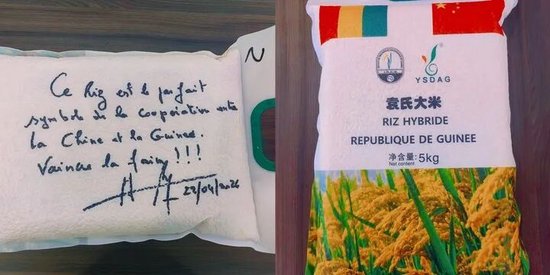 N
Ce Riz est le parfait
symbole de la cooperation entre
la Chine et la Guinee.
Vaincre la faim !!!
23/04/2026
YSDAG
袁氏大米
RIZ HYBRIDE
REPUBLIQUE DE GUINEE
净含量: 5kg
Net content